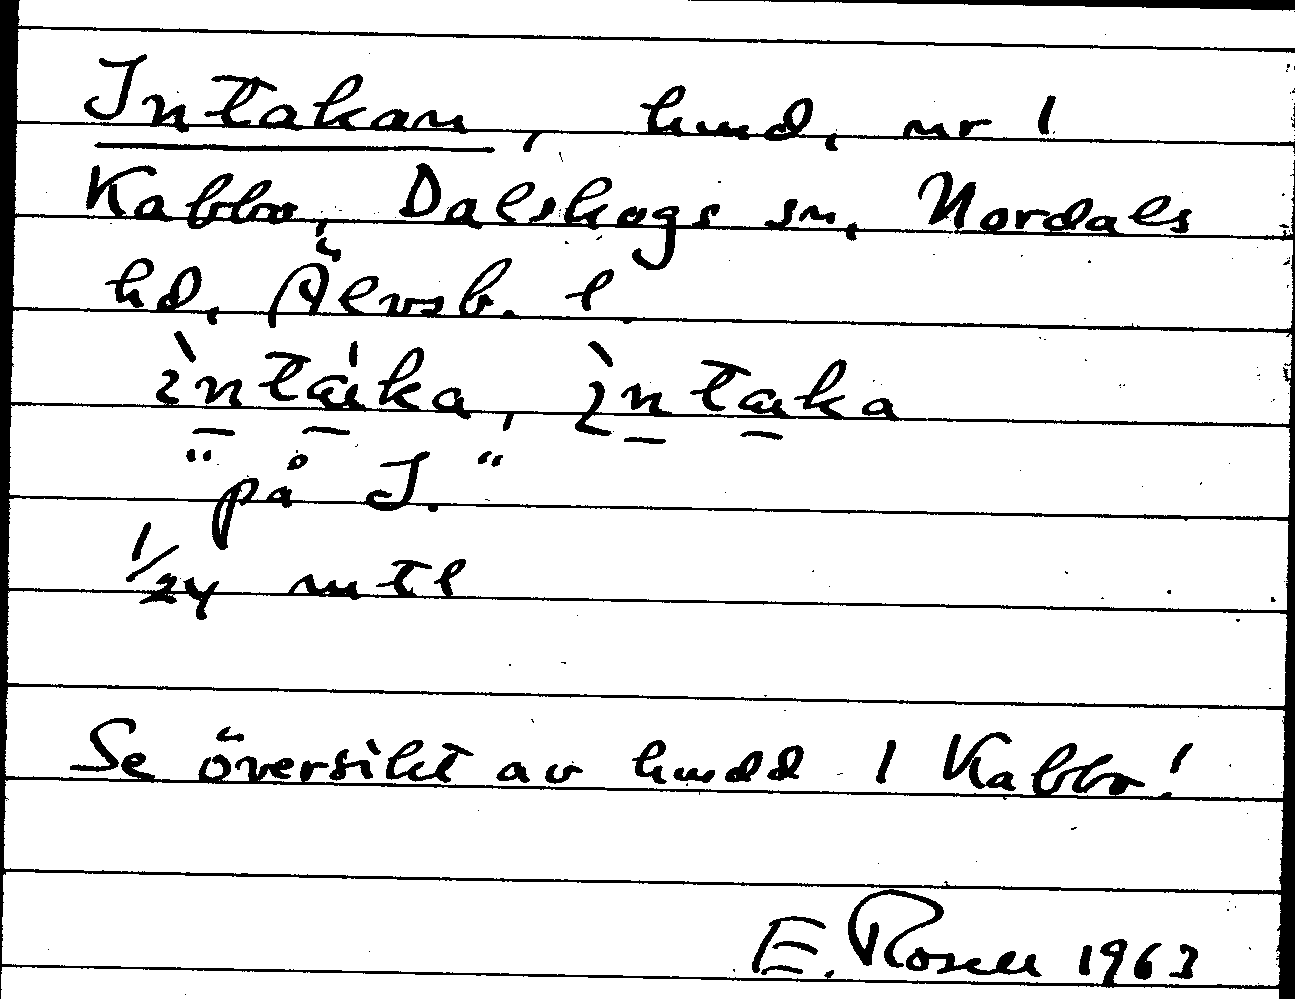 Intakan, hmd, nr 1
Kabbo, Dalskogs sn, Nordals
hd, Älvsb. l.
ìntáka, ìntaka
"på I."
1/24 mtl
Se översikt av hmdd 1 Kabbo!
E. Rosell 1963